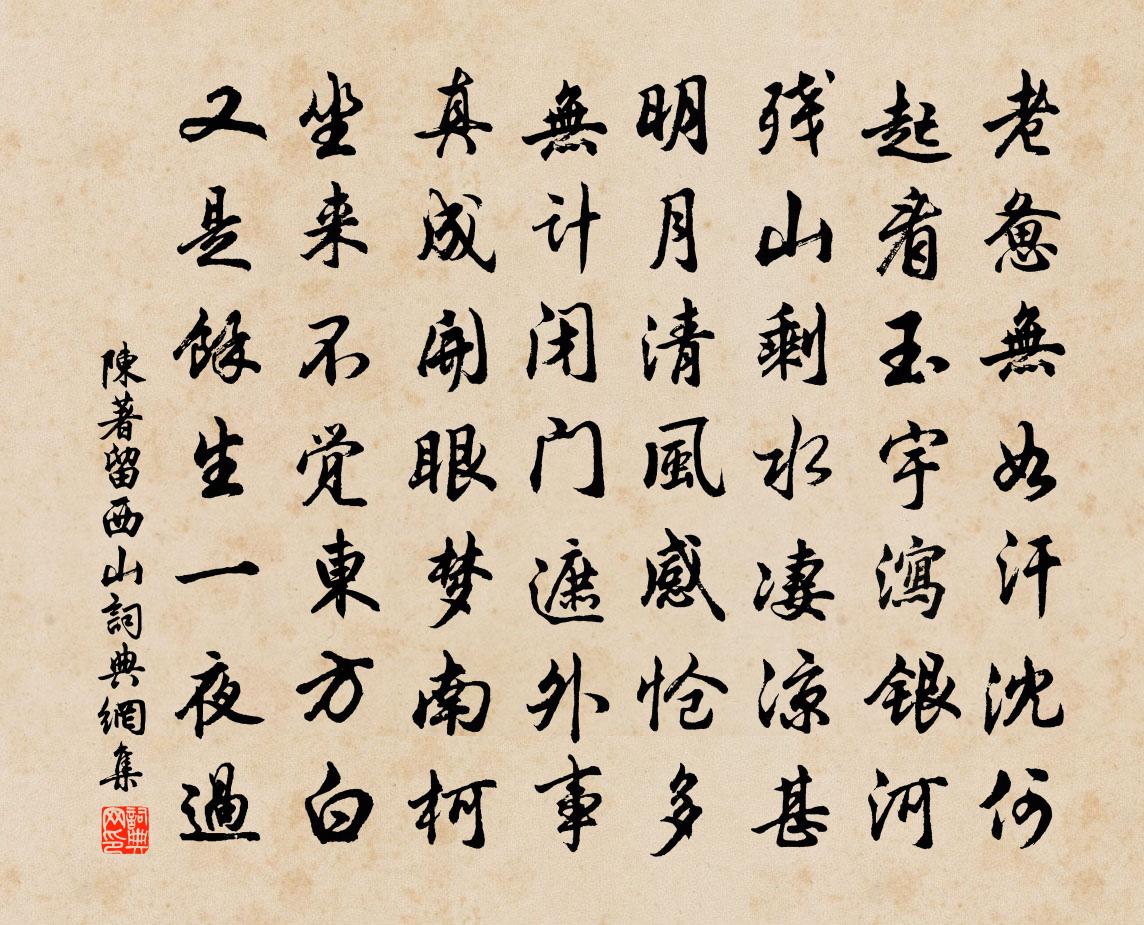 老惫無如汗沈何
起看玉宇瀉銀河
残山剩水凄涼甚
明月清風感怆多
無計闭门遮外事
真成開眼梦南柯
坐来不觉東方白
又是餘生一夜過
陳著留西山詞典網集
詞典网印